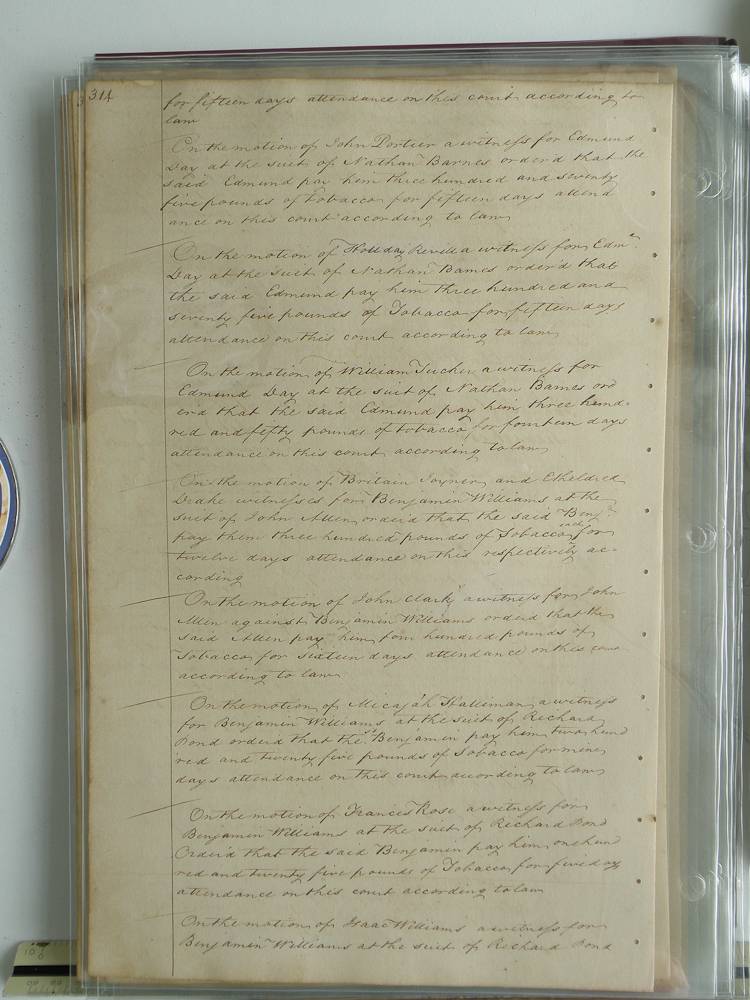 314
for fifteen days attendance on this court according to
law
On the motion of John Portier a witness for Edmund
Day at the suit of Nathan Barnes order'd that the
said Edmund pay him three hundred and seventy
five pounds of tobacco for fifteen days attend
ance on this court according to law
On the motion of Holliday Revell a witness for Edmd
Day at the suit of Nathan Barnes order'd that
the said Edmund pay him three hundred and
seventy five pounds of Tobacco for fifteen days
attendance on this court according to law
On the motion of William Tucker a witness for
Edmund Day at the suit of Nathan Barnes ord
er'd that the said Edmund pay him three hund-
red and fifty pounds of tobacco for fourteen days
attendance on this court according to law
On the motion of Britain Joyner and Etheldred
Drake witnesses for Benjamin Williams at the
suit of John Allen orderd that the said Benjn
pay them three hundred pounds of Tobacco each for
twelve days attendance on this respectively ac-
cording
On the motion of John Clark a witness for John
Allen against Benjamin Williams orderd that the
said Allen pay him four hundred pounds of
Tobacco for sixteen days attendance on this court
according to law
On the motion of Micajah Halliman a witness
for Benjamin Williams at the suit of Richard
Pond orderd that the sd Benjamin pay him two hund
red and twenty five pounds of Tobacco for nine
days attendance on this court according to law
On the motion of Francis Rose a witness for
Benjamin Williams at the suit of Richard Pond
Order'd that the said Benjamin pay him one hund
red and twenty five pounds of Tobacco for five days
attendance on this court according to law
On the motion of Isaac Williams a witness for
Benjamin Williams at the suit of Richard Pond